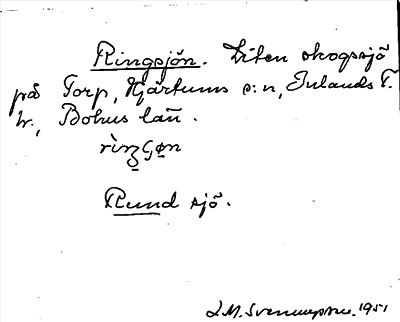 Ringsjön. Liten skogssjö
på Torp, Hjärtums s:n, Inlands T.
hr., Bohus län.
Rund sjö.
1951